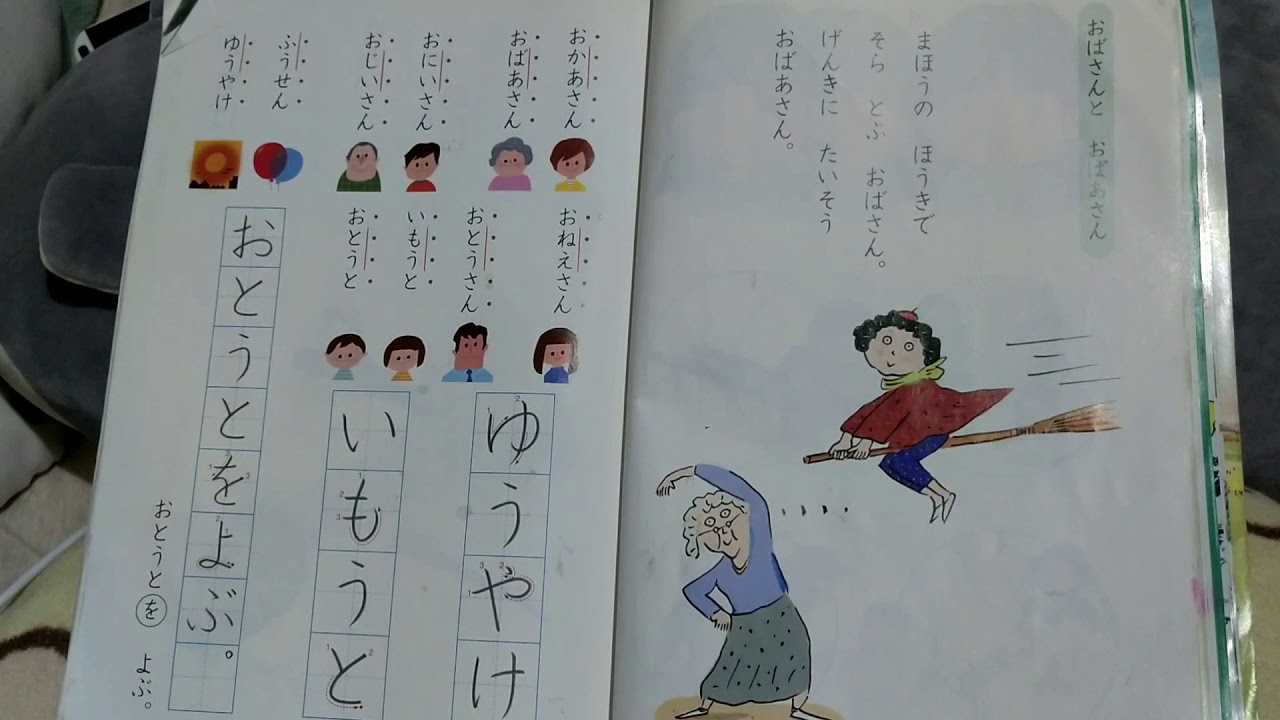 おばさんと　おばあさん
まほうの　ほうきで
そら　とぶ　おばさん。
げんきに　たいそう
おばあさん。
おかあさん
おばあさん
おにいさん
おじいさん
ふうせん
ゆうやけ
おねえさん
おとうさん
いもうと
おとうと
ゆうやけ
いもうと
おとうとをよぶ。
おとうとを　よぶ。